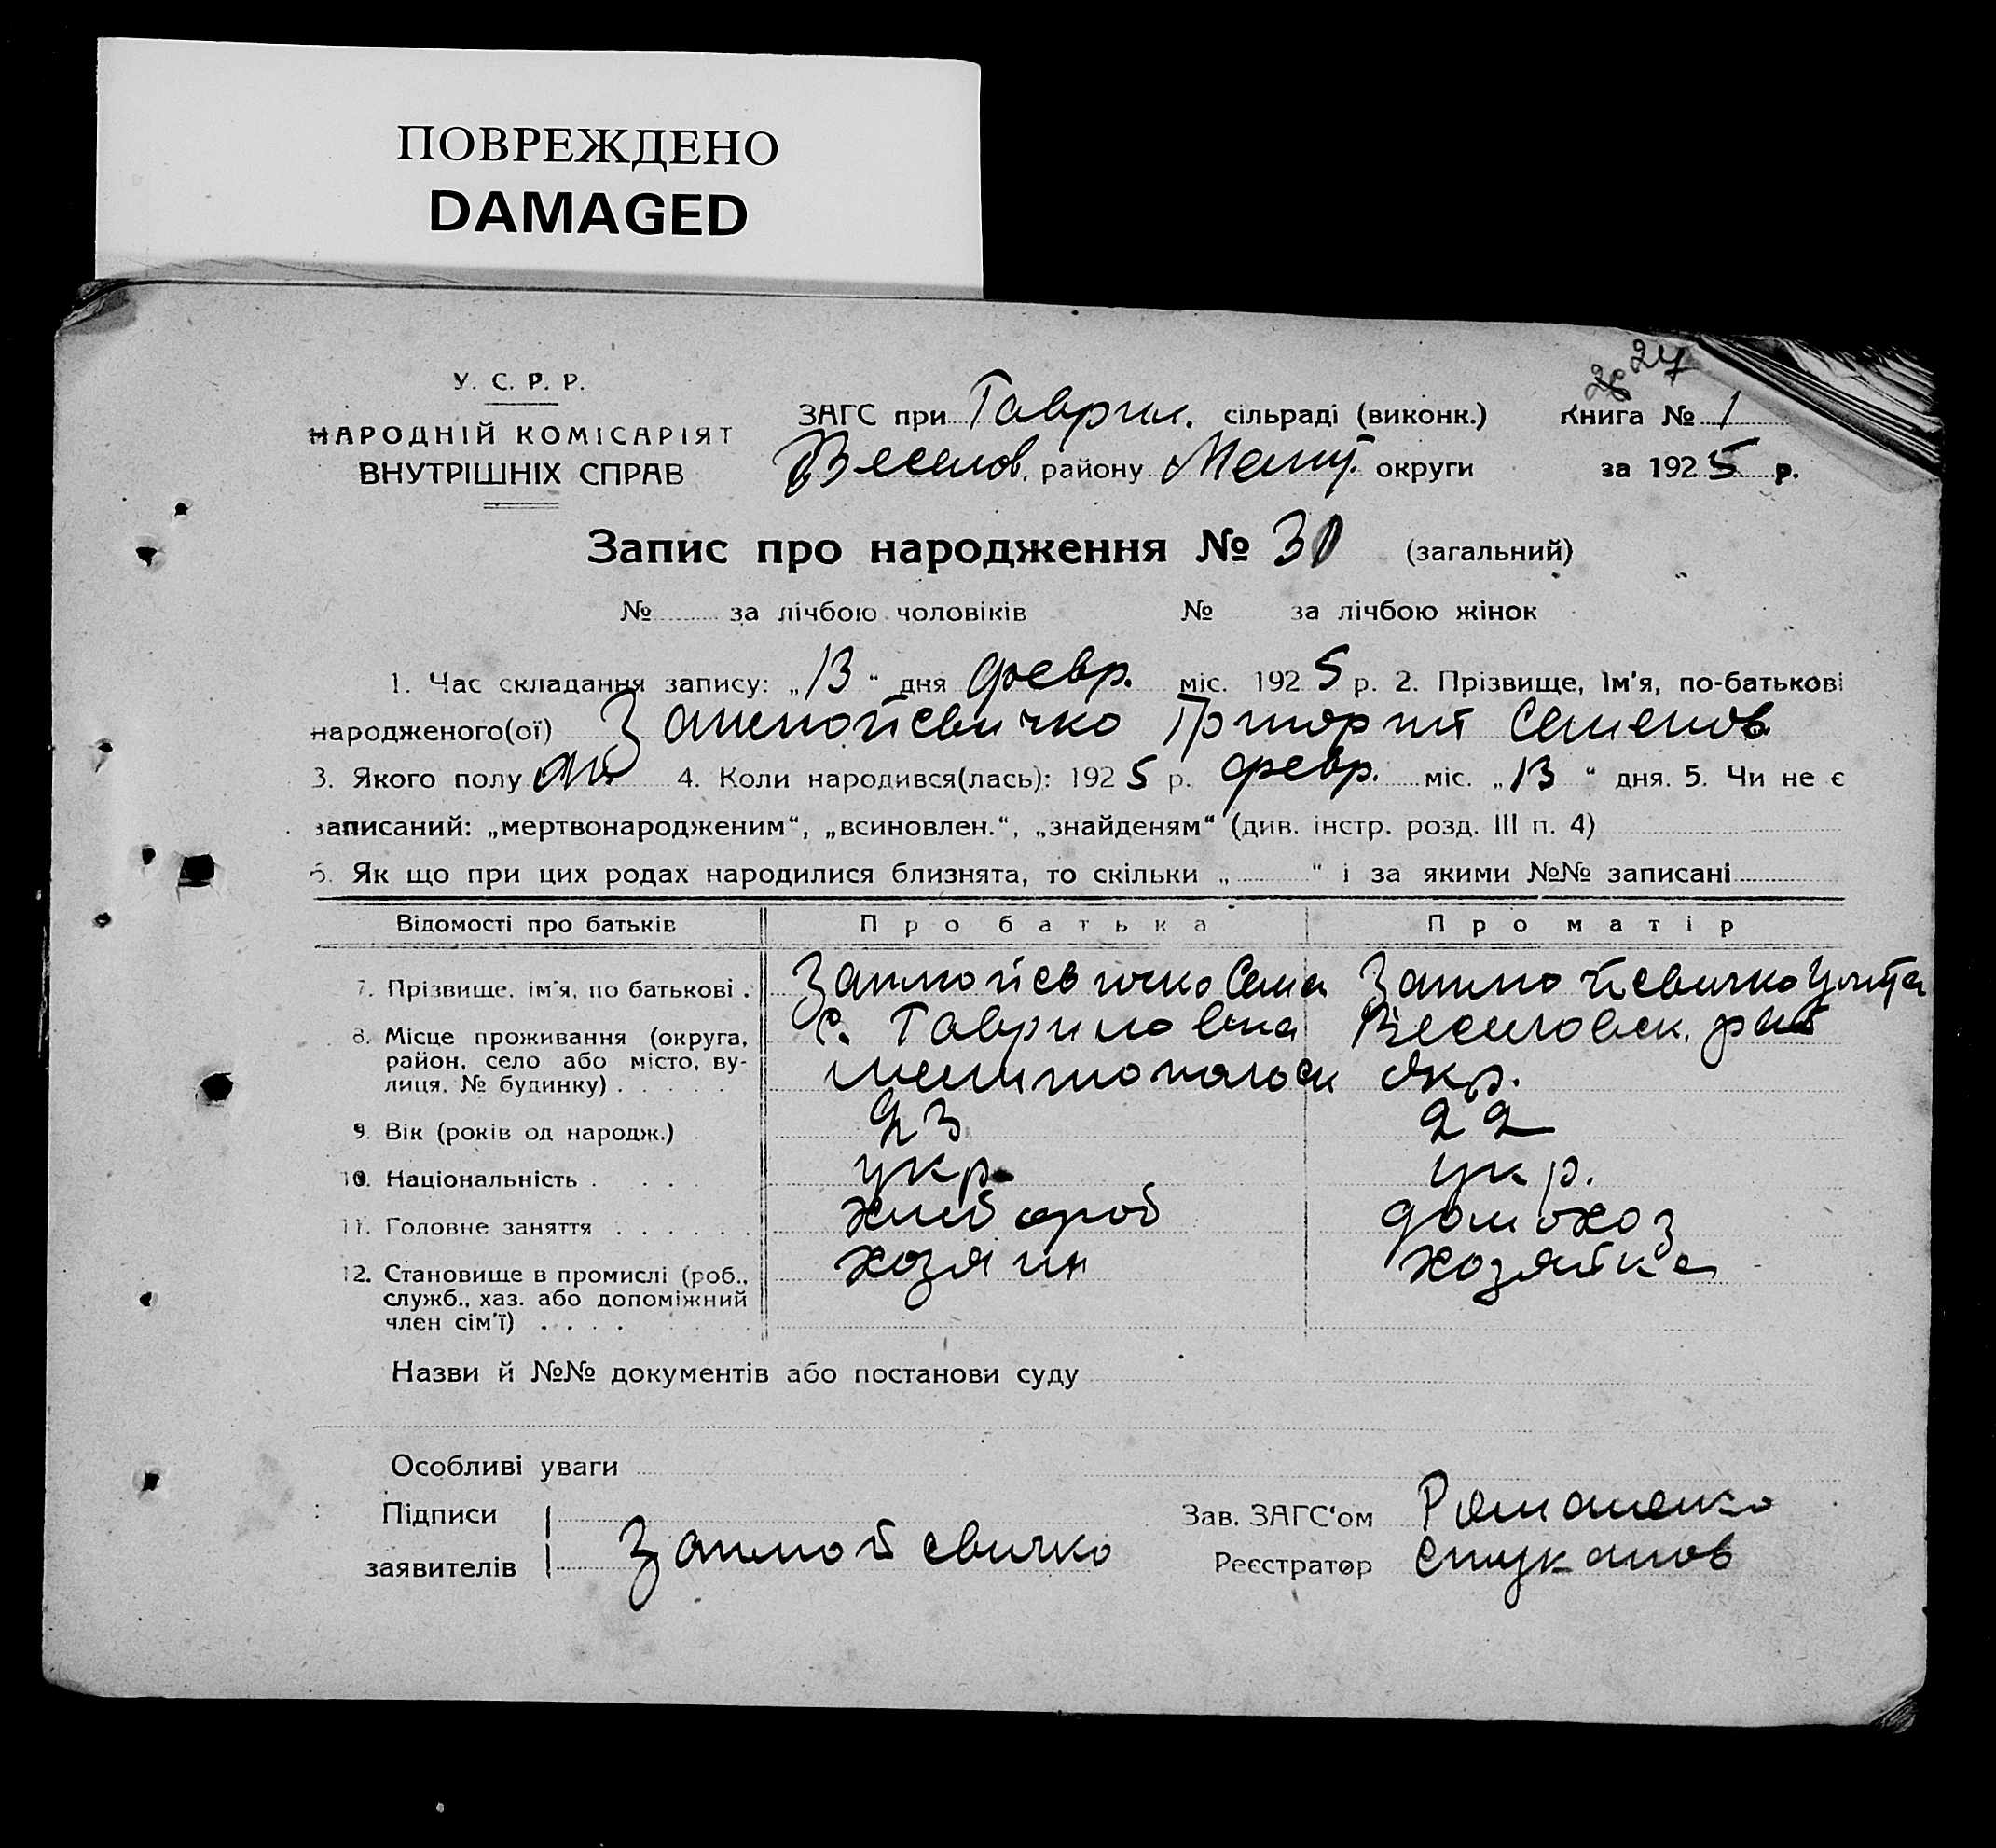 ПОВРЕЖДЕНО
DAMAGED
27
У. С. Р. Р.
НАРОДНІЙ КОМІСАРІЯТ
ВНУТРІШНІХ СПРАВ
ЗАГС при Гаврил. сільраді (виконк.) Книга № 1
Веселов. району Меліт. округи за 1925 р.
Запис про народження № 30 (загальний)
№ ........ за лічбою чоловіків № за лічбою жінок
1. Час складання запису: „13“ дня февр. міс. 1925 р. 2. Прізвище, ім'я, по-батькові
народженого(ої) Григорий Семенов
3. Якого полу 4. Коли народився(лась): 1925 р. февр. міс. „13“ дня. 5. Чи не є
записаний: „мертвонародженим“, „всиновлен.“, „знайденям“ (див. інстр. розд. III п. 4)
6. Як що при цих родах народилися близнята, то скільки „........“ і за якими №№ записані
Відомості про батьків Про батька Про матір
7. Прізвище, ім'я, по батькові . Сема
8. Місце проживання (округа, с. Гавриловка Веселовск. рай
район, село або місто, ву-
лиця, № будинку) . . . . . мелитопольск окр.
9. Вік (років од народж.) 23 22
10. Національність . . . . . укр. укр.
11. Головне заняття . . . . . . хлебороб домохоз
12. Становище в промислі (роб., хозяин хозяйка
служб., хаз. або допоміжний
член сім'ї) . . . .
Назви й №№ документів або постанови суду
Особливі уваги
Підписи Зав. ЗАГС'ом Романенко
заявителів Реєстратор Стуканов